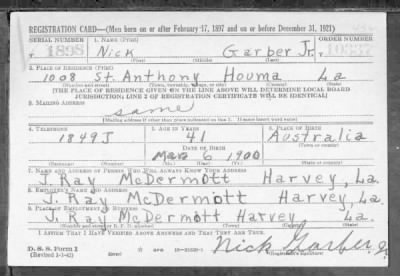 REGISTRATION CARD—(Men born on or after February 17, 1897 and on or before December 31, 1921)
SERIAL NUMBER 1. NAME (Print) ORDER NUMBER
T 1898 Nick Garber Jr. T 10337
(First) (Middle) (Last)
2. PLACE OF RESIDENCE (Print)
1008 St. Anthony Houma La
(Number and street) (Town, township, village, or city) (County) (State)
[THE PLACE OF RESIDENCE GIVEN ON THE LINE ABOVE WILL DETERMINE LOCAL BOARD
JURISDICTION; LINE 2 OF REGISTRATION CERTIFICATE WILL BE IDENTICAL]
3. MAILING ADDRESS
same
[Mailing address if other than place indicated on line 2. If same insert word same]
4. TELEPHONE 5. AGE IN YEARS 6. PLACE OF BIRTH
1849J 41 Australia
DATE OF BIRTH (Town or county)
Mar 6 1900
(Exchange) (Number) (Mo.) (Day) (Yr.) (State or country)
7. NAME AND ADDRESS OF PERSON WHO WILL ALWAYS KNOW YOUR ADDRESS
J. Ray McDermott Harvey, La.
8. EMPLOYER'S NAME AND ADDRESS
J. Ray McDermott Harvey, La.
9. PLACE OF EMPLOYMENT OR BUSINESS
J. Ray McDermott Harvey, La.
(Number and street or R. F. D. number) (Town) (County) (State)
I AFFIRM THAT I HAVE VERIFIED ABOVE ANSWERS AND THAT THEY ARE TRUE.
D. S. S. Form 1
(Revised 1-1-42) (over) Nick Garber, Jr.
(Registrant's signature)